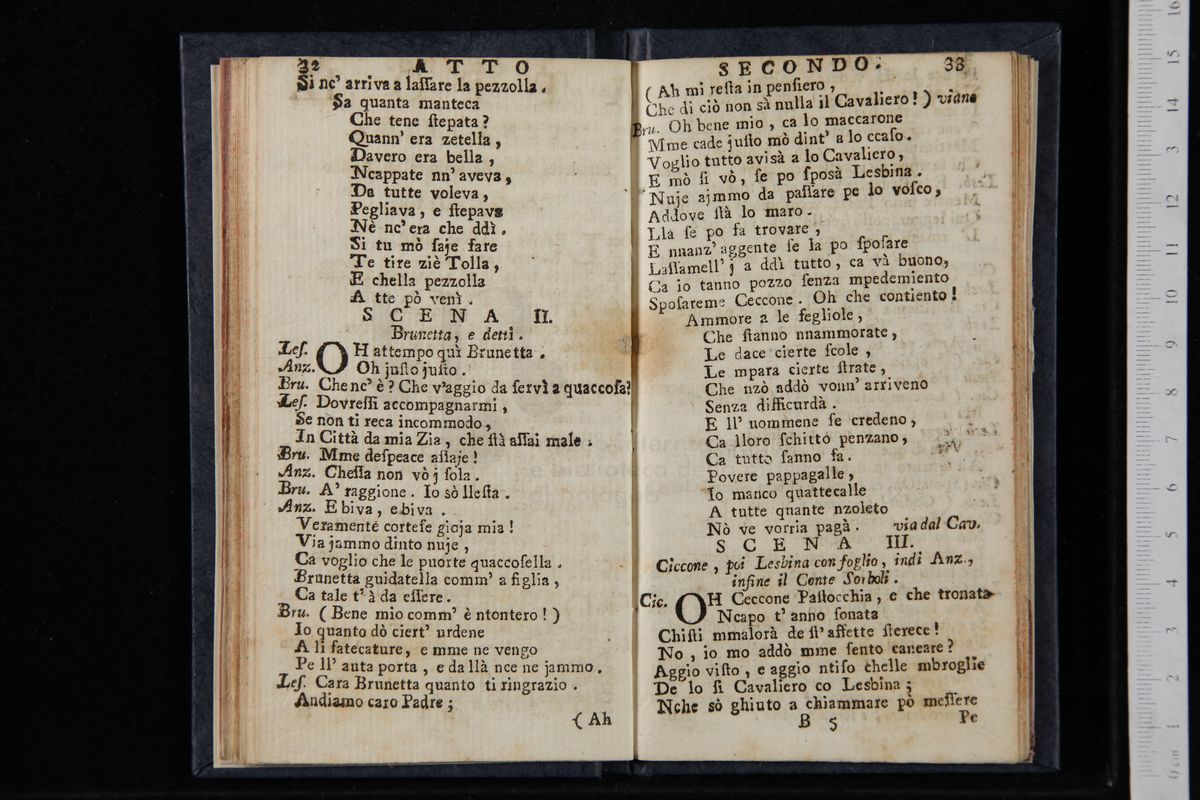 32 ATTO
Si nc' arriva a laſſare la pezzolla.
Sa quanta manteca
Che tene ſtepata?
Quann' era zetella,
Davero era bella,
Ncappate nn' aveva,
Da tutte voleva,
Pegliava, e ſtepava
Nè nc' era che ddì.
Si tu mò ſaje fare
Te tire ziè Tolla,
E chella pezzolla
A tte pò venì.
SCENA II.
Brunetta, e detti.
Leſ. OH attempo quì Brunetta.
Anz. Oh juſto juſto.
Bru. Che nc' è? Che v'aggio da ſervì a quaccoſa?
Leſ. Dovreſſi accompagnarmi,
Se non ti reca incommodo,
In Città da mia Zia, che ſtà aſſai male.
Bru. Mme deſpeace aſſaje!
Anz. Cheſſa non vò j ſola.
Bru. A' raggione. Io sò lleſta.
Anz. E biva, e biva.
Veramente corteſe gioja mia!
Via jammo dinto nuje,
Ca voglio che le puorte quaccoſella.
Brunetta guidatella comm' a figlia,
Ca tale t' à da eſſere.
Bru. (Bene mio comm' è ntontero!)
Io quanto dò ciert' urdene
A li fatecature, e mme ne vengo
Pe ll' auta porta, e da llà nce ne jammo.
Leſ. Cara Brunetta quanto ti ringrazio.
Andiamo caro Padre;
(Ah
SECONDO. 33
(Ah mi reſta in penſiero,
Che di ciò non sà nulla il Cavaliero!) viano
Bru. Oh bene mio, ca lo maccarone
Mme cade juſto mò dint' a lo ccaſo.
Voglio tutto aviſà a lo Cavaliero,
E mò ſi vò, ſe po ſposà Lesbina.
Nuje ajmmo da paſſare pe lo voſco,
Addove ſtà lo maro.
Llà ſe po fa trovare,
E nnanz' aggente ſe la po ſpoſare
Laſſamell' j a ddì tutto, ca và buono,
Ca io tanno pozzo ſenza mpedemiento
Spoſareme Ceccone. Oh che contiento!
Ammore a le fegliole,
Che ſtanno nnammorate,
Le dace cierte ſcole,
Le mpara cierte ſtrate,
Che nzò addò vonn' arriveno
Senza difficurdà.
E ll' uommene ſe credeno,
Ca lloro ſchitto penzano,
Ca tutto ſanno fa.
Povere pappagalle,
Io manco quattecalle
A tutte quante nzoleto
Nò ve vorria pagà. via dal Cav.
SCENA III.
Ciccone, poi Lesbina con foglio, indi Anz.,
infine il Conte Sorboli.
Cic. OH Ceccone Paſtocchia, e che tronata
Ncapo t' anno ſonata
Chiſti mmalorà de ſt' affette ſterece!
No, io mo addò mme ſento caneare?
Aggio viſto, e aggio ntiſo chelle mbroglie
De lo ſi Cavaliero co Lesbina;
Nche sò ghiuto a chiammare pò meſſere
B 5 Pe